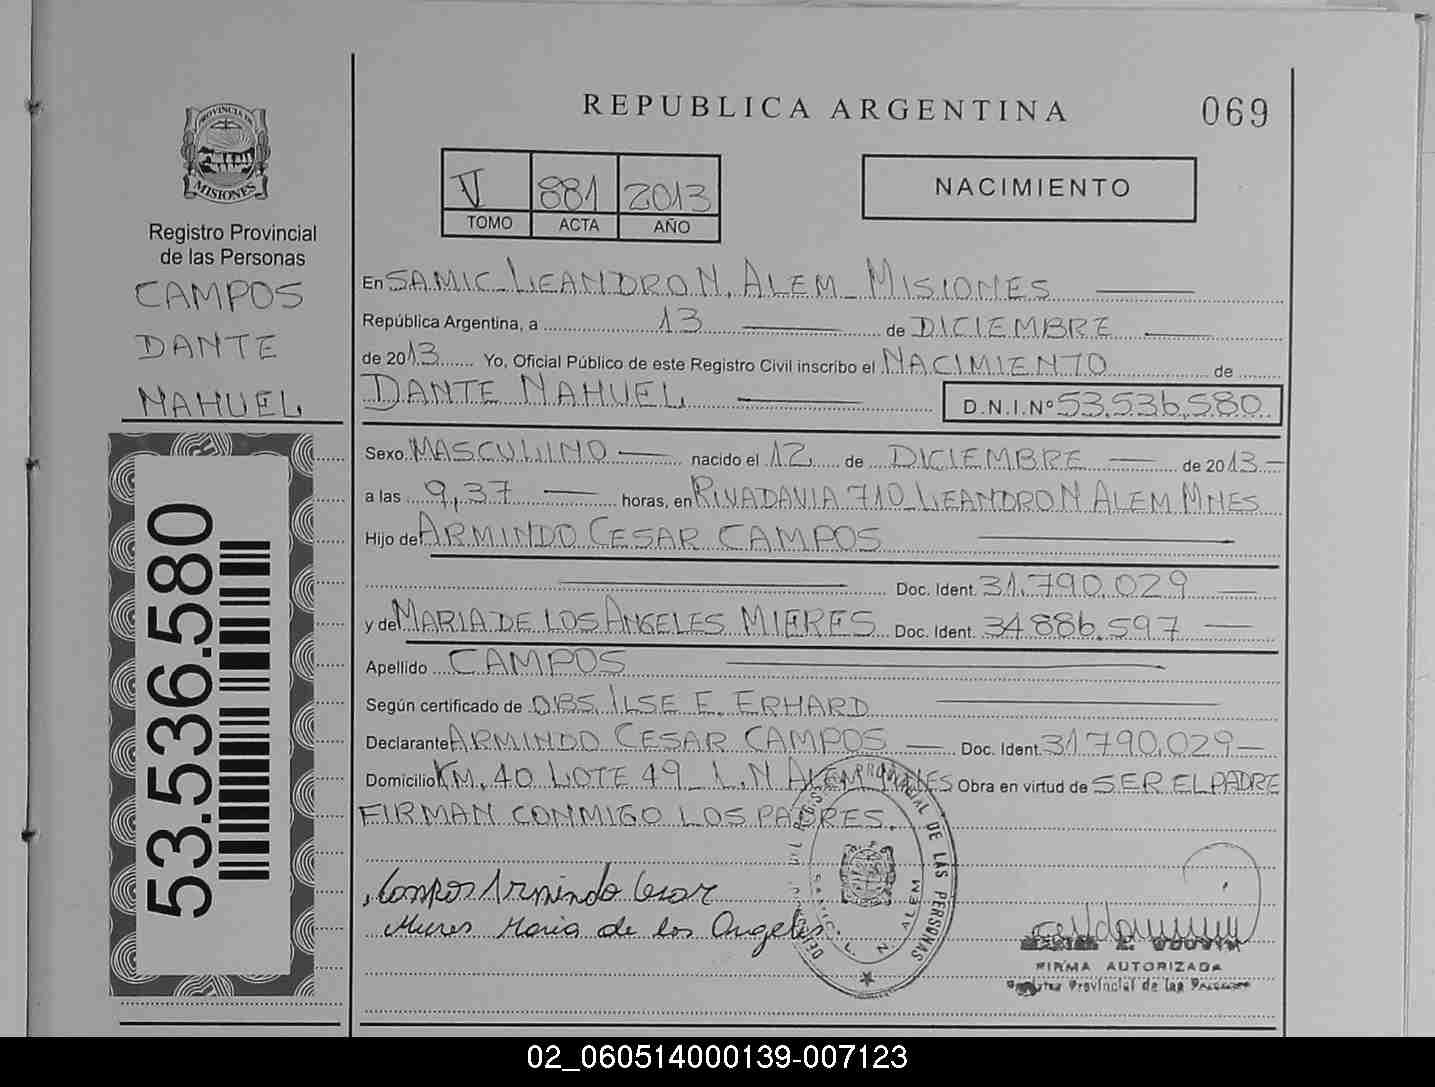 REPUBLICA ARGENTINA
069
PROVINCIA DE
MISIONES
Registro Provincial
de las Personas
CAMPOS
DANTE
NAHUEL
53.536.580
V 881 2013
TOMO ACTA AÑO
NACIMIENTO
En SAMIC_LEANDRO N. ALEM_MISIONES
República Argentina, a 13 de DICIEMBRE
de 2013 Yo, Oficial Público de este Registro Civil inscribo el NACIMIENTO de
DANTE NAHUEL D.N.I.Nº 53.536.580
Sexo MASCULINO nacido el 12 de DICIEMBRE de 2013
a las 9,37 horas, en RIVADAVIA 710_LEANDRO N ALEM MNES
Hijo de ARMINDO CESAR CAMPOS
Doc. Ident. 31.790.029
y de MARIA DE LOS ANGELES MIERES Doc. Ident. 34886.597
Apellido CAMPOS
Según certificado de OBS. ILSE E. ERHARD
Declarante ARMINDO CESAR CAMPOS Doc. Ident. 31790.029
Domicilio KM. 40 LOTE 49_L.N ALEM MNES Obra en virtud de SER EL PADRE
FIRMAN CONMIGO LOS PADRES.
Campos Armindo Cesar
Mieres Maria de los Angeles.
PROVINCIAL DE LAS PERSONAS
L. N. ALEM
FIRMA AUTORIZADA
Provincial de las
02_060514000139-007123